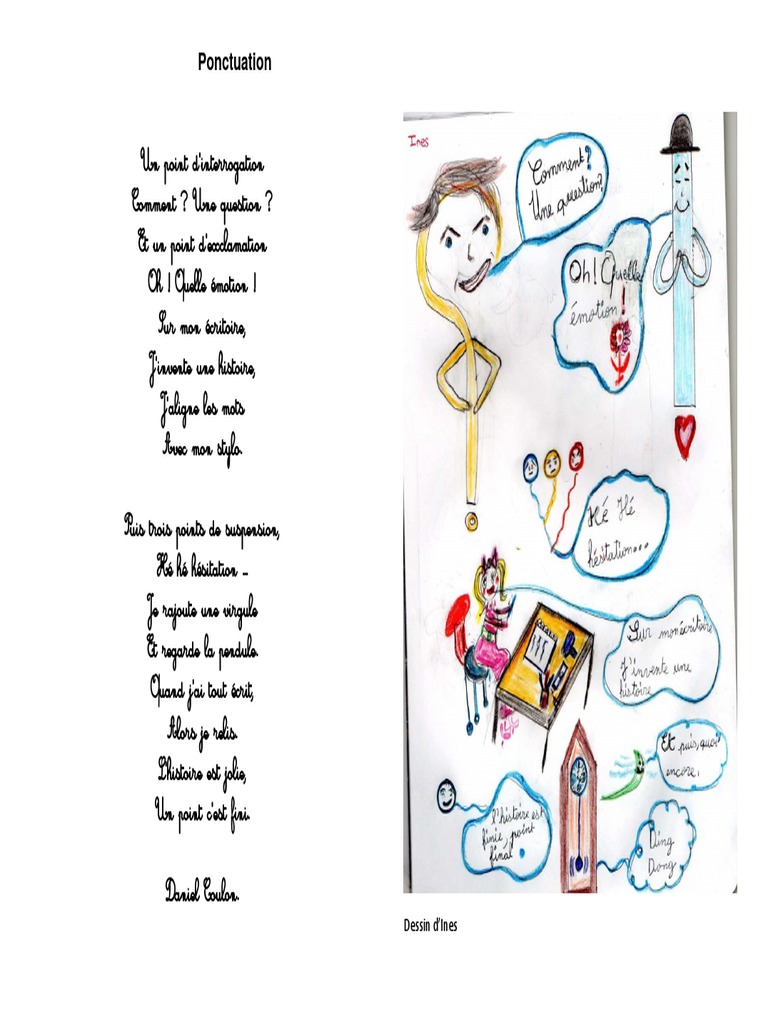 Ponctuation
Un point d'interrogation
Comment ? Une question ?
Et un point d'exclamation
Oh ! Quelle émotion !
Sur mon écritoire,
J'invente une histoire,
J'aligne les mots
Avec mon stylo.
Puis trois points de suspension,
Hé hé hésitation …
Je rajoute une virgule
Et regarde la pendule.
Quand j'ai tout écrit,
Alors je relis.
L'histoire est jolie,
Un point c'est fini.
Daniel Coulon.
Ines
Comment?
Une question?
Oh! Quelle
émotion!
Hé Hé
hésitation...
Sur mon écritoire
J'invente une
histoire
Et puis, quoi
encore,
l'histoire est
finie, point
final
Ding
Dong
Dessin d'Ines